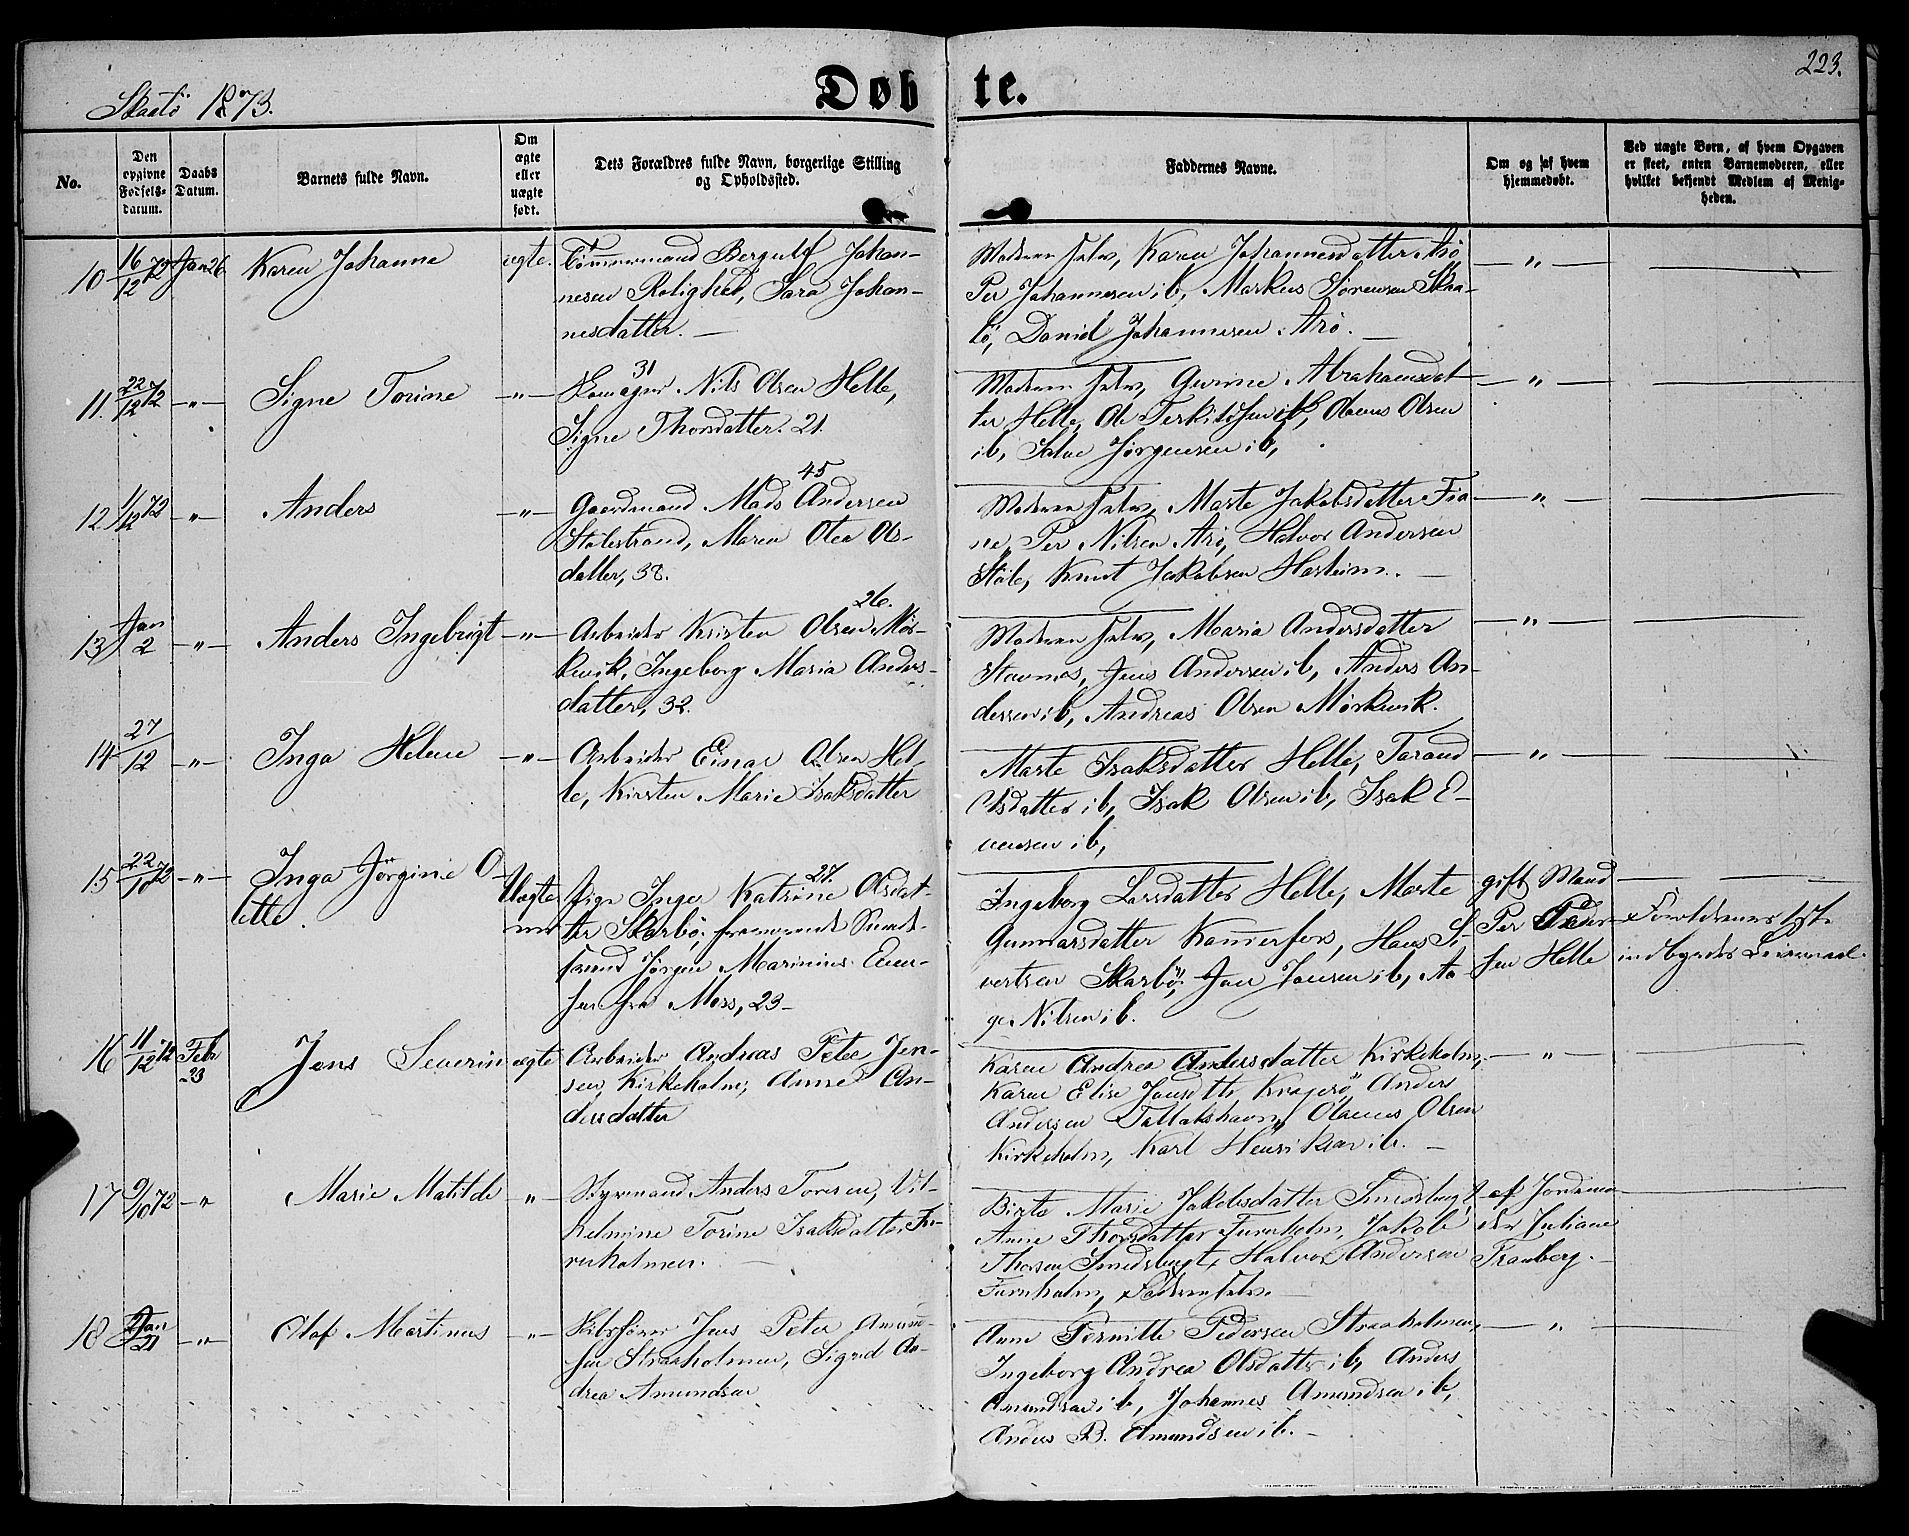 Skaatö 1873.
Døbte.
223.
No.
Den opgivne Fødsels-datum.
Daabs Datum.
Barnets fulde Navn.
Om ægte eller uægte født.
Dets Forældres fulde Navn, borgerlige Stilling og Opholdssted.
Faddernes Navne.
Om og af hvem hjemmedøbt.
Ved uægte Børn, af hvem Opgaven er skeet, enten Barnemoderen, eller hvilket bekjendt Medlem af Menigheden.
10 16/12 72 Jan 26 Karen Johanna ægte.
Tömmermand Bergulf Johan-
nesen Rolighed, Sara Johan-
nesdatter. —
Moderen selv, Karen Johannesdatter Arö,
Per Johannesen ib, Markus Sörensen Skaa-
tö, Daniel Johannesen Arö. —
— " —
11. 22/12 72 — " — Signe Torine — " —
31
Nils Olsen Helle,
Signe Thorsdatter. 21.
Moderen selv, Gurine Abrahamsdat-
ter Helle, Ole Terkildsen ib, Olaves Olsen
ib, Salve Jörgensen ib,
— " —
12 1/12 72 — " — Anders — " —
45
Gaardmand Mads Andersen
Stölestrand, Maren Olea Ols-
datter, 38.
Moderen selv, Marte Jakobsdatter Fia-
ne, Per Nilsen Arö, Halvor Andersen
Stöle, Knut Jakobsen Hasteim. —
— " —
13 Jan 2 — " — Anders Ingebrigt — " —
26.
Arbeider Kristen Olsen Mör-
kevik, Ingeborg Maria Anders-
datter, 32.
Moderen selv, Maria Andersdatter
Stavnes, Jens Andersen ib, Anders An-
dersen ib, Andreas Olsen Mörkevik.
— " —
14 27/12 — " — Inga Helene — " —
Arbeider Einar Olsen Hel-
le, Kirsten Marie Isaksdatter
Marte Isaksdatter Helle, Tarand
Olsdatter ib, Isak Olsen ib, Isak E-
vensen ib,
— " —
15 22/10 72 — " — Inga Jörgine O-
lette.
Uægte
27.
Pige Inger Katrine Olsdat-
ter Skarbö, fraværende
Jörgen Marinius Ener-
sen fra Moss, 23 —
Ingeborg Larsdatter Helle, Marte
Gunnarsdatter Kammerfos, Hans Si-
vertsen Skarbö, Jan Jansen ib, Aa-
ge Nilsen ib.
gift Mand
Per Peder-
sen Helle
Forældrenes 1ste
indbyrdes Leiermaal.
16 11/12 72 Feb 23 Jens Severin ægte
Arbeider Andreas Peter Jen-
sen Kirkeholm, Anne An-
dersdatter
Karen Andrea Andersdatter Kirkeholm,
Karen Elise Jansdtr Kragerö, Anders
Andersen Tallakshavn, Olaves Olsen
Kirkeholm, Karl Henriksen ib. —
— " —
17 9/10 72 — " Marie Matilde — " —
Styrmand Anders Toresen, Vil-
helmine Torine Isaksdatter Fu-
ruholmen. —
Birte Marie Jakobsdatter Smedsbugt,
Anne Thorsdatter Furuholm, Jakob
Thorsen Smedsbugt, Halvor Andersen
Furuholm, Faderen selv.
af Jordemo-
der Juliane
Tranberg.
18 Jan 21 — " — Olaf Martinus — " —
Skibsförer Jens Peter Amund-
sen Straaholmen, Sigrid An-
drea Amundsen
Anne Pernille Pedersen Straaholmen,
Ingeborg Andrea Olsdatter ib, Anders
Amundsen ib, Johannes Amundsen ib,
Anders B. Amundsen ib. —
— " —